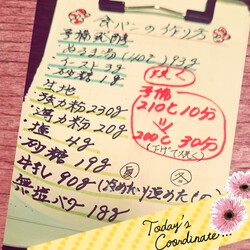 食パンの作り方
予備武碑
やるま湯(40℃)93g
イースト3g
砂糖1g
生地
強力粉230g
薄力粉20g
塩 4g
砂糖 19g
牛乳 90g(冷めたい)温めた(もの)
夏 冬
無塩バター18g
焼く
予備
210℃10分
200℃30分
(下げて焼く)
Today's
Coordinate...